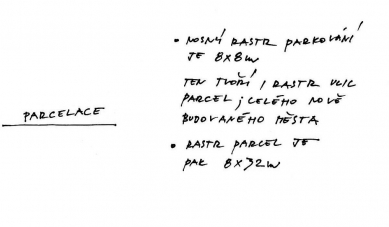 PARCELACE
• NOSNÝ RASTR PARKOVÁNÍ
JE 8X8m
TEN TVOŘÍ I RASTR ULIC
PARCEL I CELÉHO NOVĚ
BUDOVANÉHO MĚSTA
• RASTR PARCEL JE
PAK 8X32m